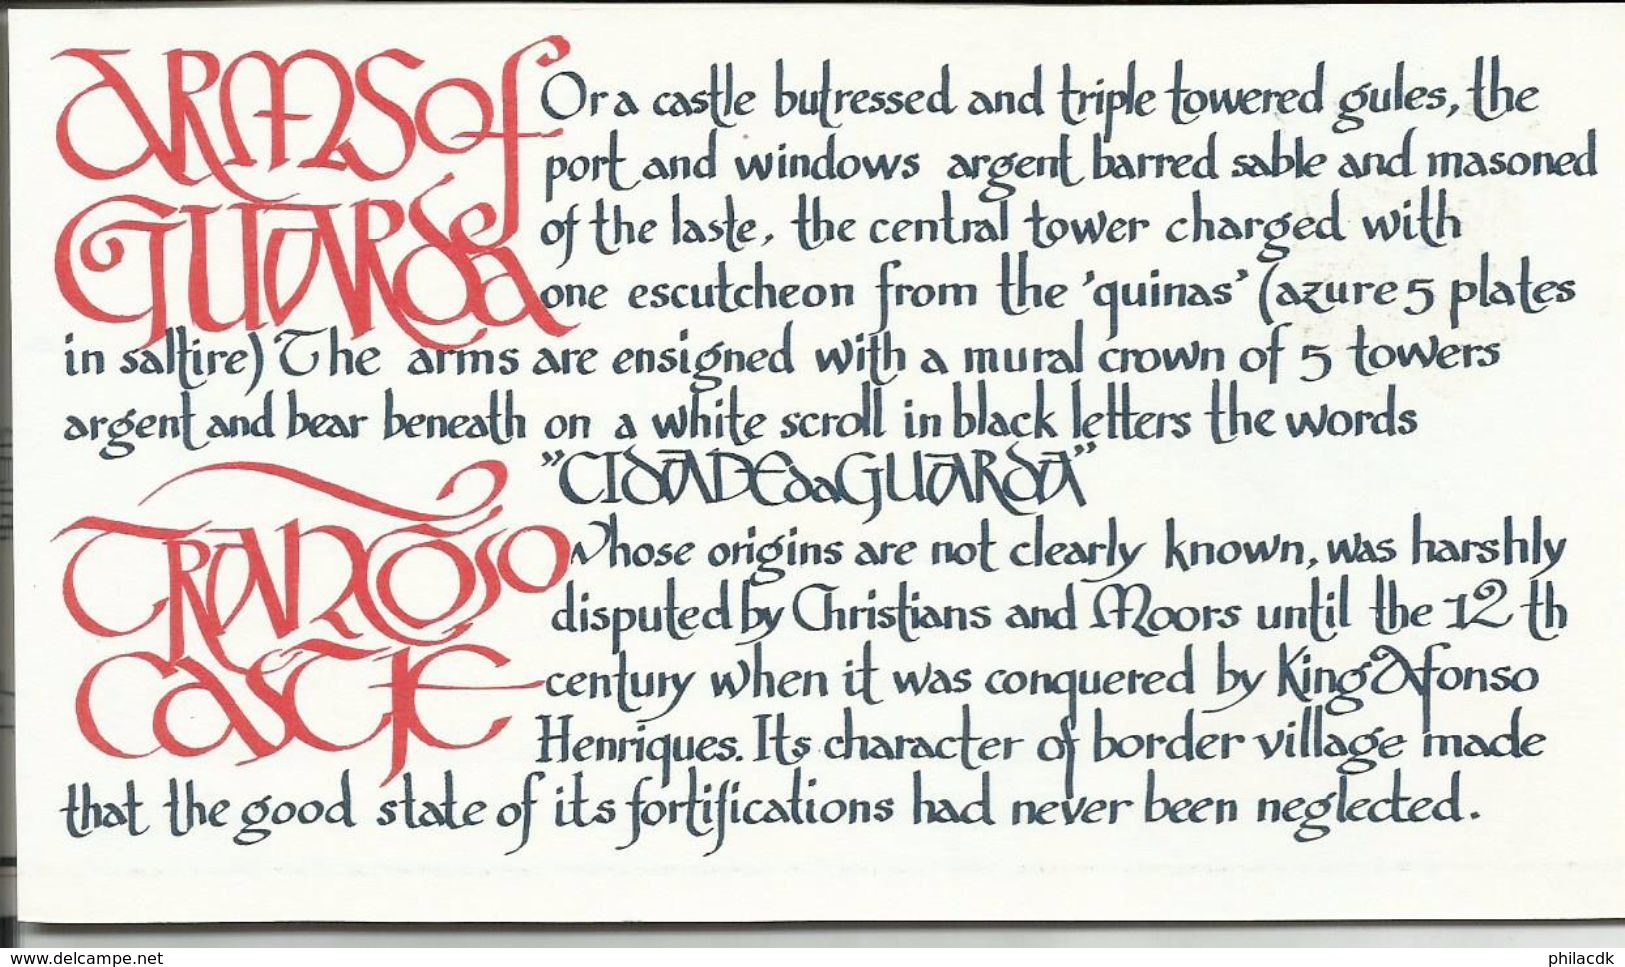 ARMS of
GUARDA
Or a castle butressed and triple towered gules, the
port and windows argent barred sable and masoned
of the laste, the central tower charged with
one escutcheon from the 'quinas' (azure 5 plates
in saltire) The arms are ensigned with a mural crown of 5 towers
argent and bear beneath on a white scroll in black letters the words
"CIDADE da GUARDA"
TRANCOSO
CASTLE
Whose origins are not clearly known, was harshly
disputed by Christians and Moors until the 12 th
century when it was conquered by King Afonso
Henriques. Its character of border village made
that the good state of its fortifications had never been neglected.
www.delcampe.net
philacdk